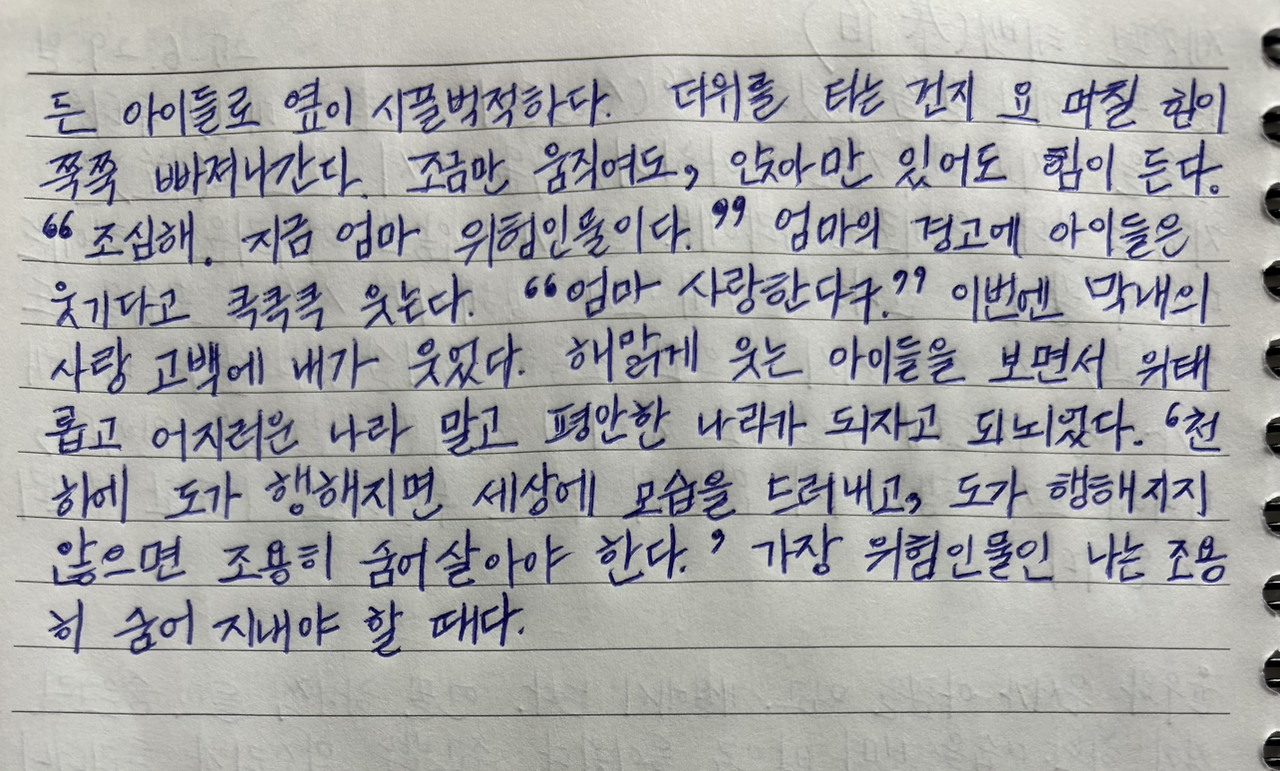 든 아이들로 옆이 시끌벅적하다. 더위를 타는 건지 요 며칠 힘이
쭉쭉 빠져나간다. 조금만 움직여도, 앉아만 있어도 힘이 든다.
“조심해. 지금 엄마 위험인물이다.” 엄마의 경고에 아이들은
웃기다고 큭큭큭 웃는다. “엄마 사랑한다구.” 이번엔 막내의
사랑 고백에 내가 웃었다. 해맑게 웃는 아이들을 보면서 위태
롭고 어지러운 나라 말고 평안한 나라가 되자고 되뇌었다. ‘천
하에 도가 행해지면 세상에 모습을 드러내고, 도가 행해지지
않으면 조용히 숨어살아야 한다.’ 가장 위험인물인 나는 조용
히 숨어 지내야 할 때다.